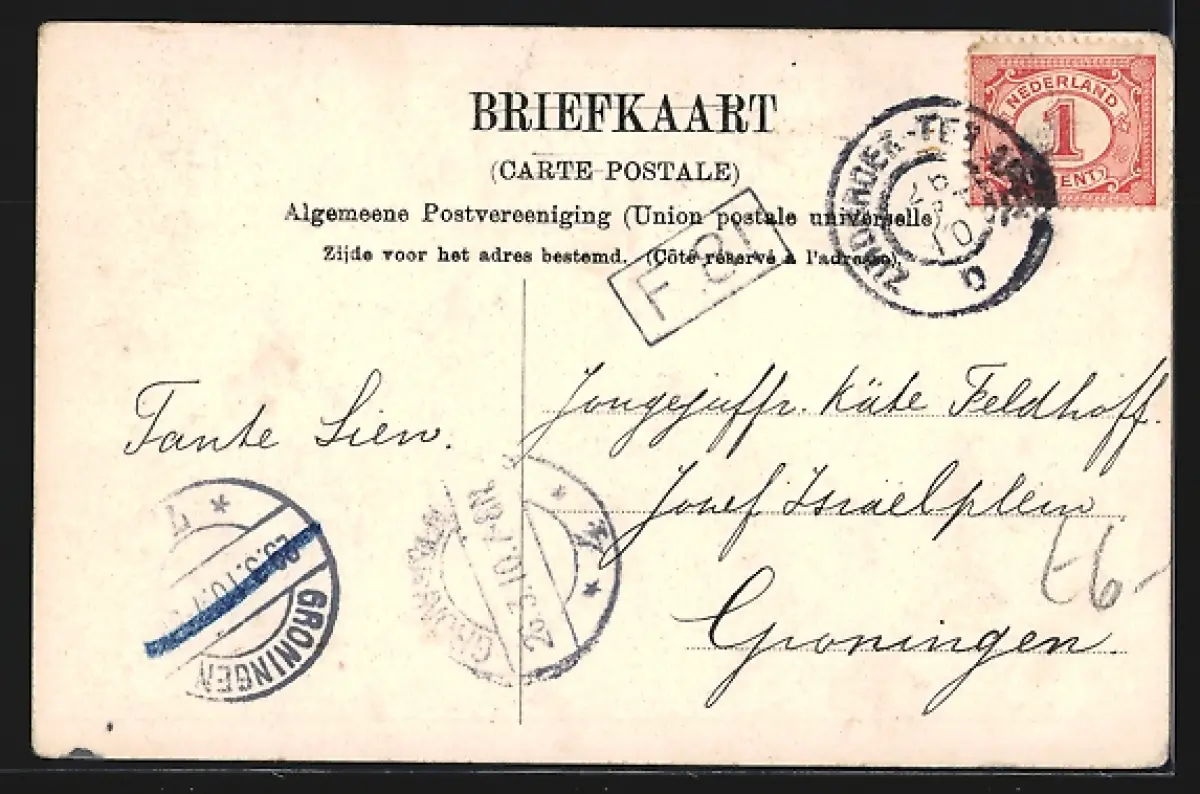 BRIEFKAART
(CARTE POSTALE)
Algemeene Postvereeniging (Union postale universelle)
Zijde voor het adres bestemd. (Côté réservé à l'adresse).
NEDERLAND
1
CENT
10
F.81
Tante Sien.
Jongejuffr. Käte Feldhoff.
Josef Israëlplein
Groningen.
GRONINGEN
26.3.10.7-8N
E6-